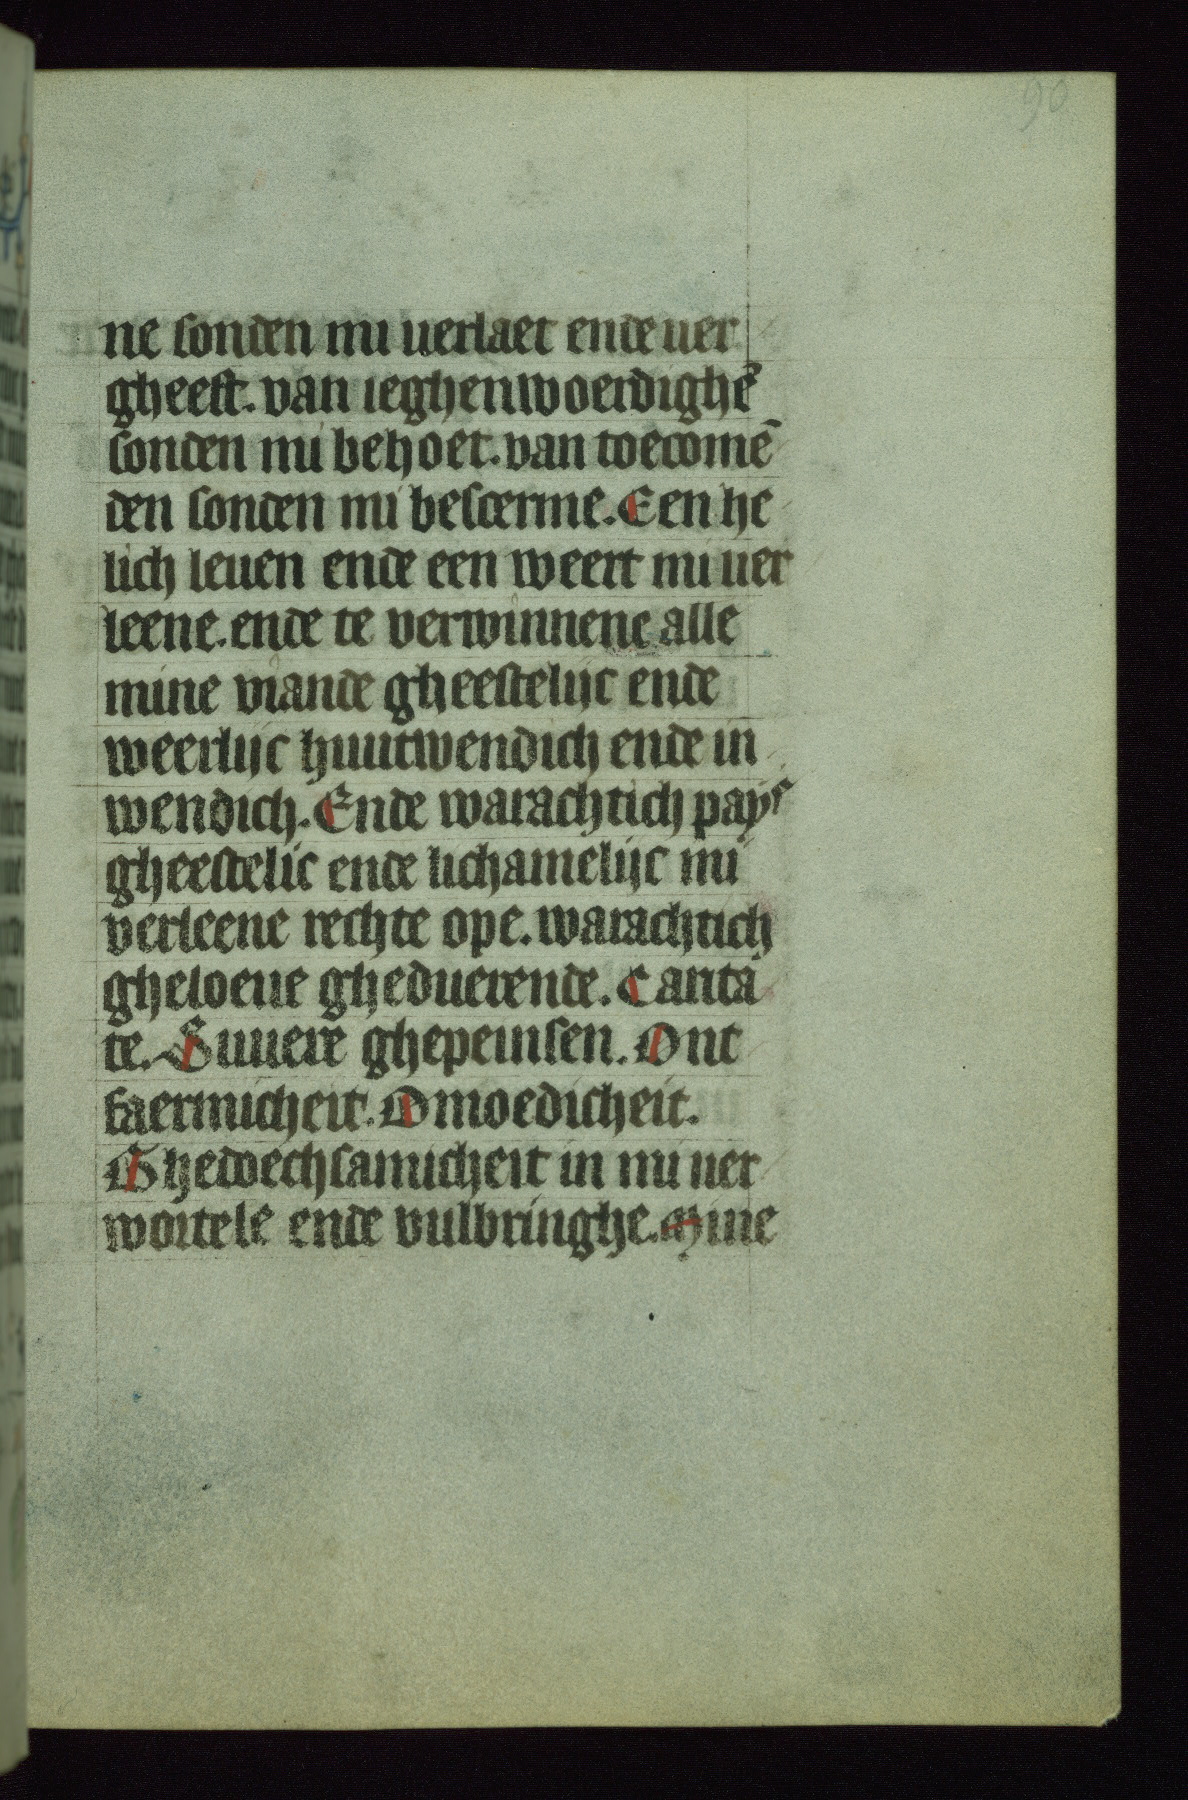 90
ne sonden mi uerlaet ende uer
gheeft. van ieghenwoerdighē
sonden mi behoet. van toecomē
den sonden mi bescerme. Een he
lich leuen ende een weert mi uer
leene. ende te verwinnene alle
mine viande gheestelijc ende
weerlijc huutwendich ende in
wendich. Ende warachtich pays
gheestelic ende lichamelijc mi
verleene rechte ope. warachtich
gheloeue gheduerende. Carita
te. Suuere ghepeinsen. Ont
faermicheit. Omoedicheit.
Ghedoechsamicheit in mi uer
wortele ende vulbringhe. Mine